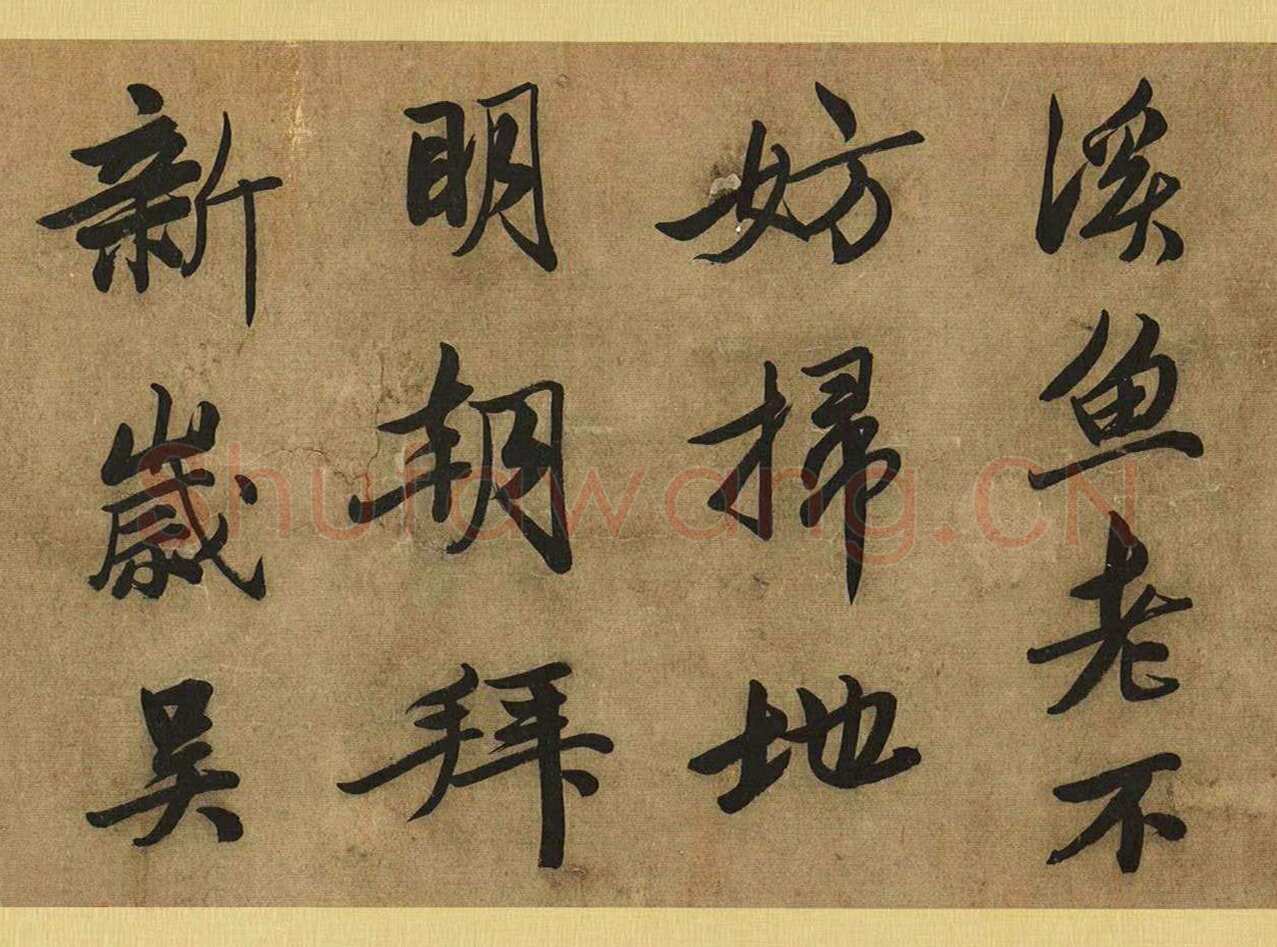 溪魚老不
妨掃地
明朝拜
新歲吳
Shufawang.CN